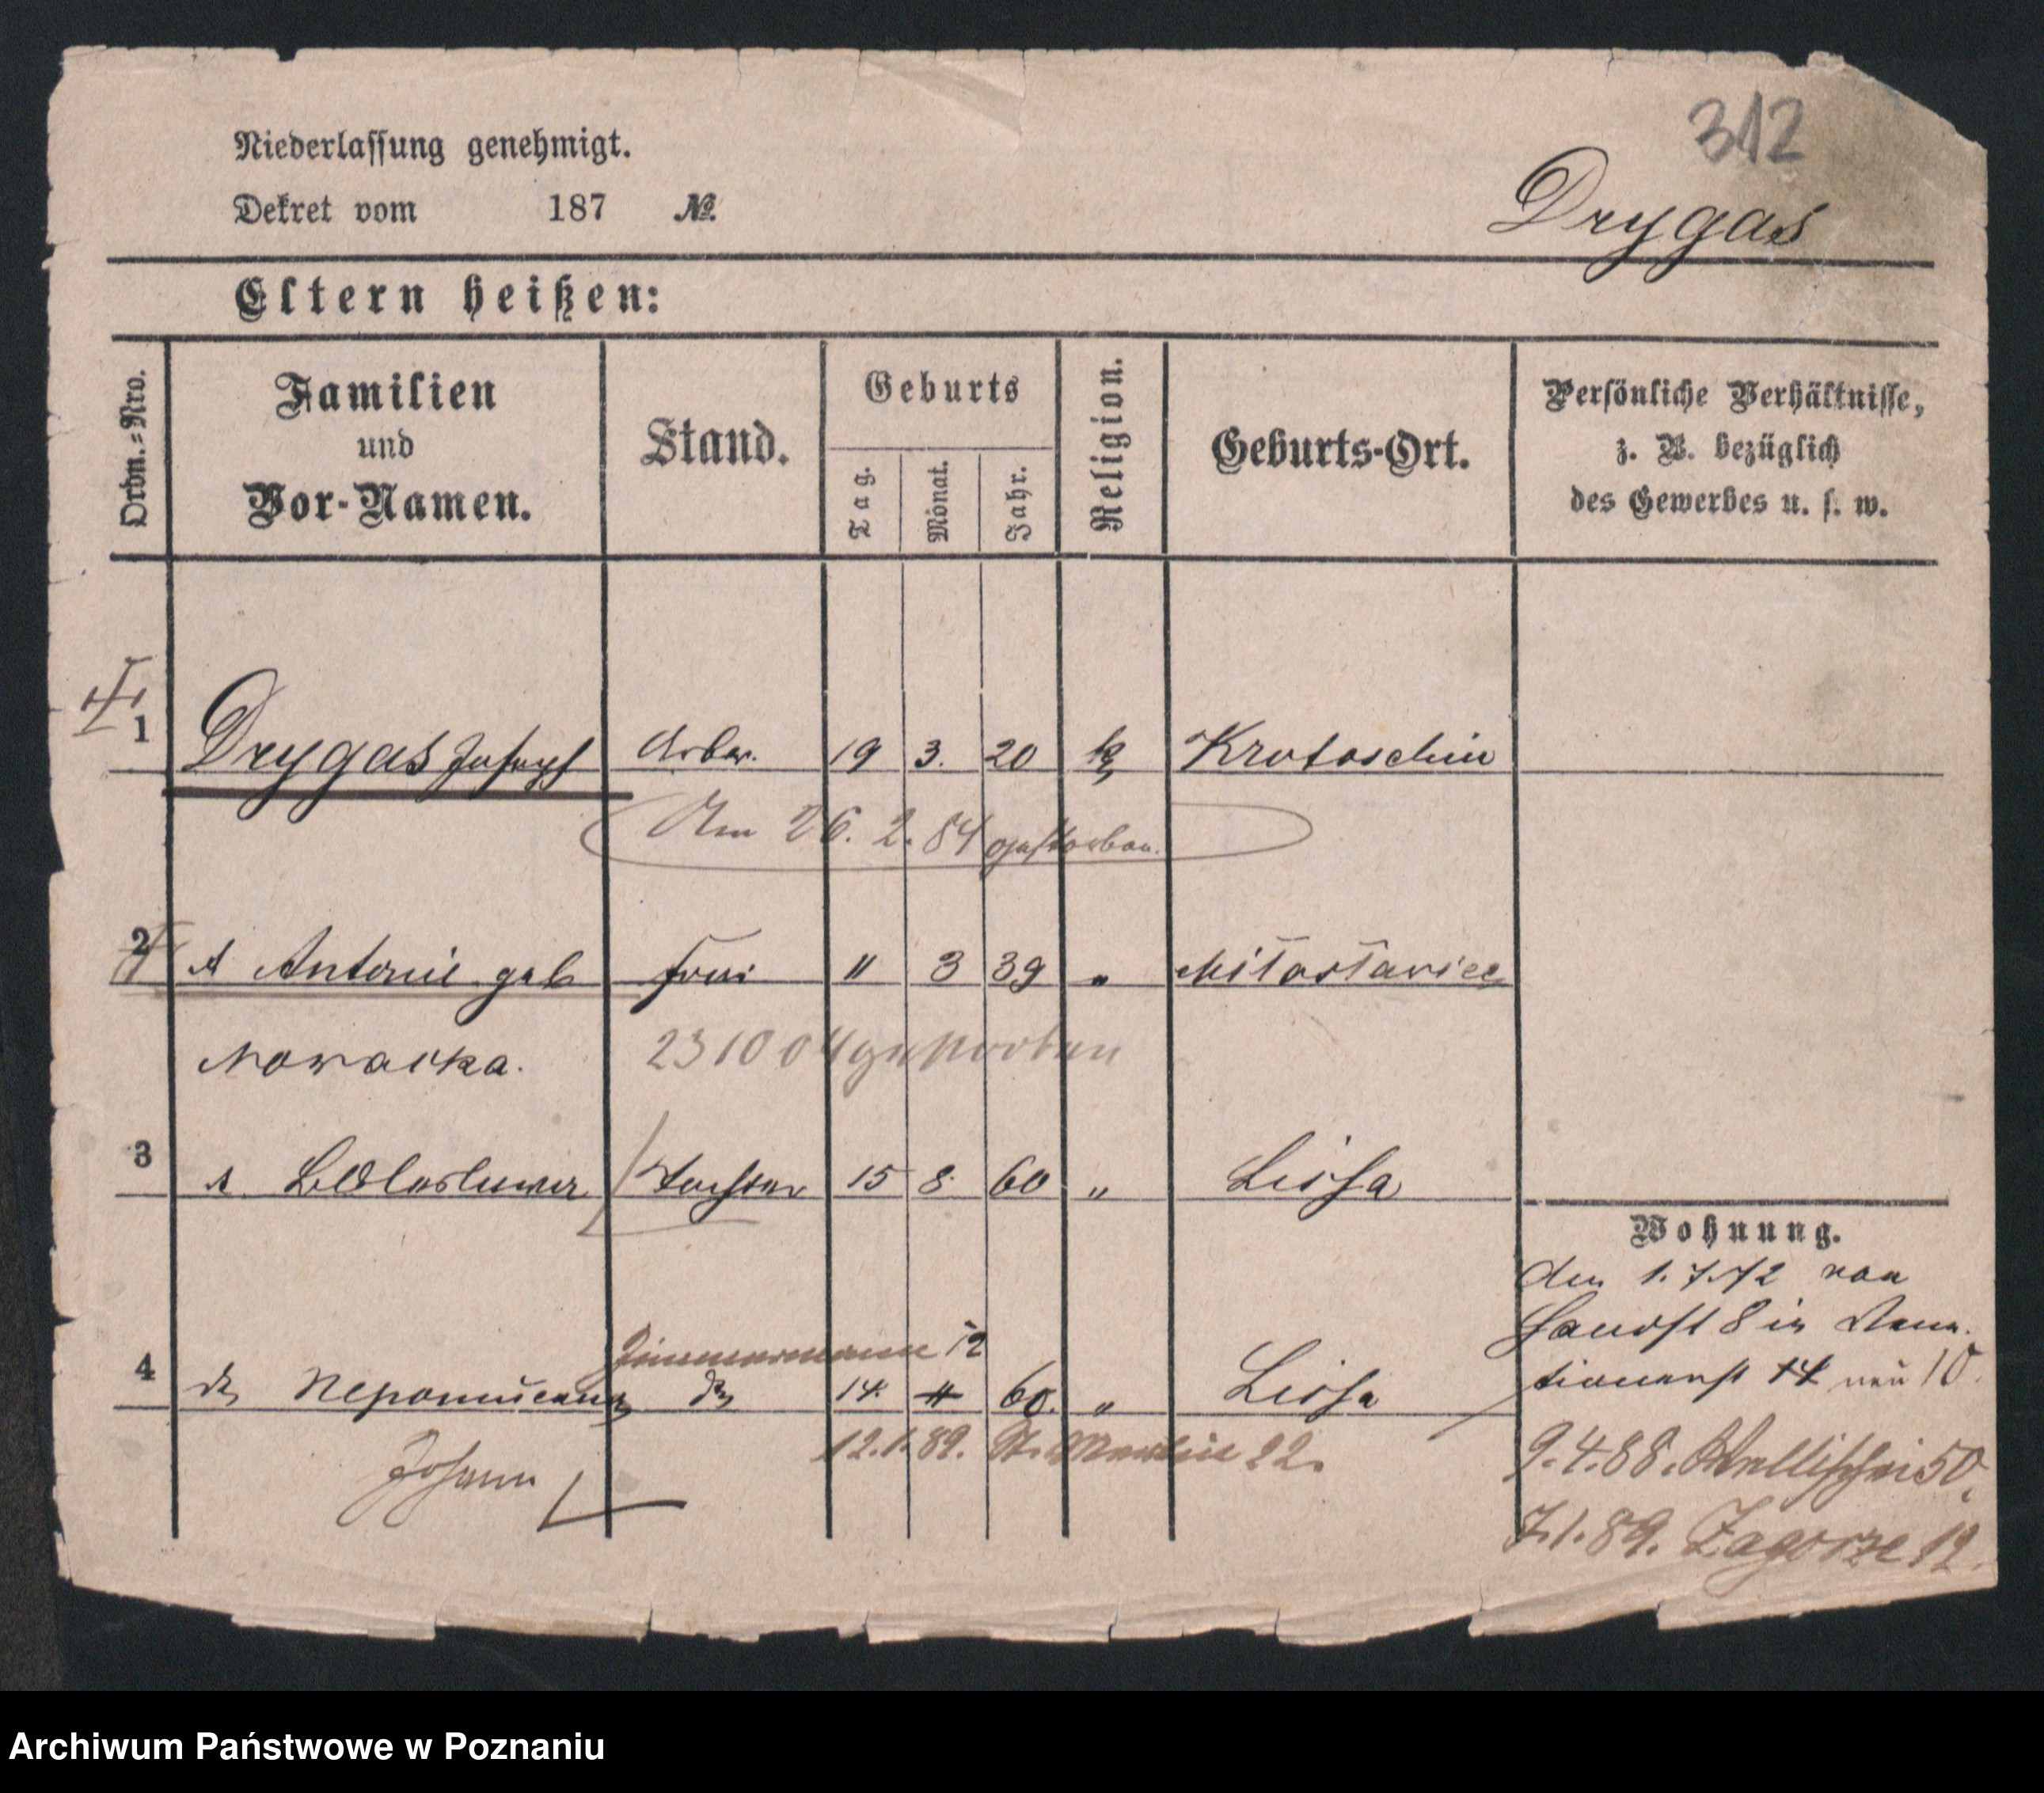 312
Niederlassung genehmigt.
Dekret vom 187 №.
Drygas
Eltern heißen:
Ordn.=Nro.
Familien
und
Vor-Namen.
Stand.
Geburts
Tag.
Monat.
Jahr.
Religion.
Geburts-Ort.
Persönliche Verhältnisse,
z. B. bezüglich
des Gewerbes u. s. w.
1 Drygas Joseph Arbtr. 19 3. 20 k Krotoschin
Am 26. 2. 84 gestorben.
2 Antonie geb Frau " 3 39 " Miłosławice
Nowacka. 23 10 04 gestorben
3 Tochter 15 8. 60 " Lissa
Wohnung.
den 1.7.72 von
8 in
tionenst 14 neu 10.
Zimmermann 12
4 Nepomucena 14. 11 60. " Lissa
Johann
12.1.89. St. Martin 22.
9.4.88. Wallischei 50.
7.1.89. Zagorze 12.
Archiwum Państwowe w Poznaniu